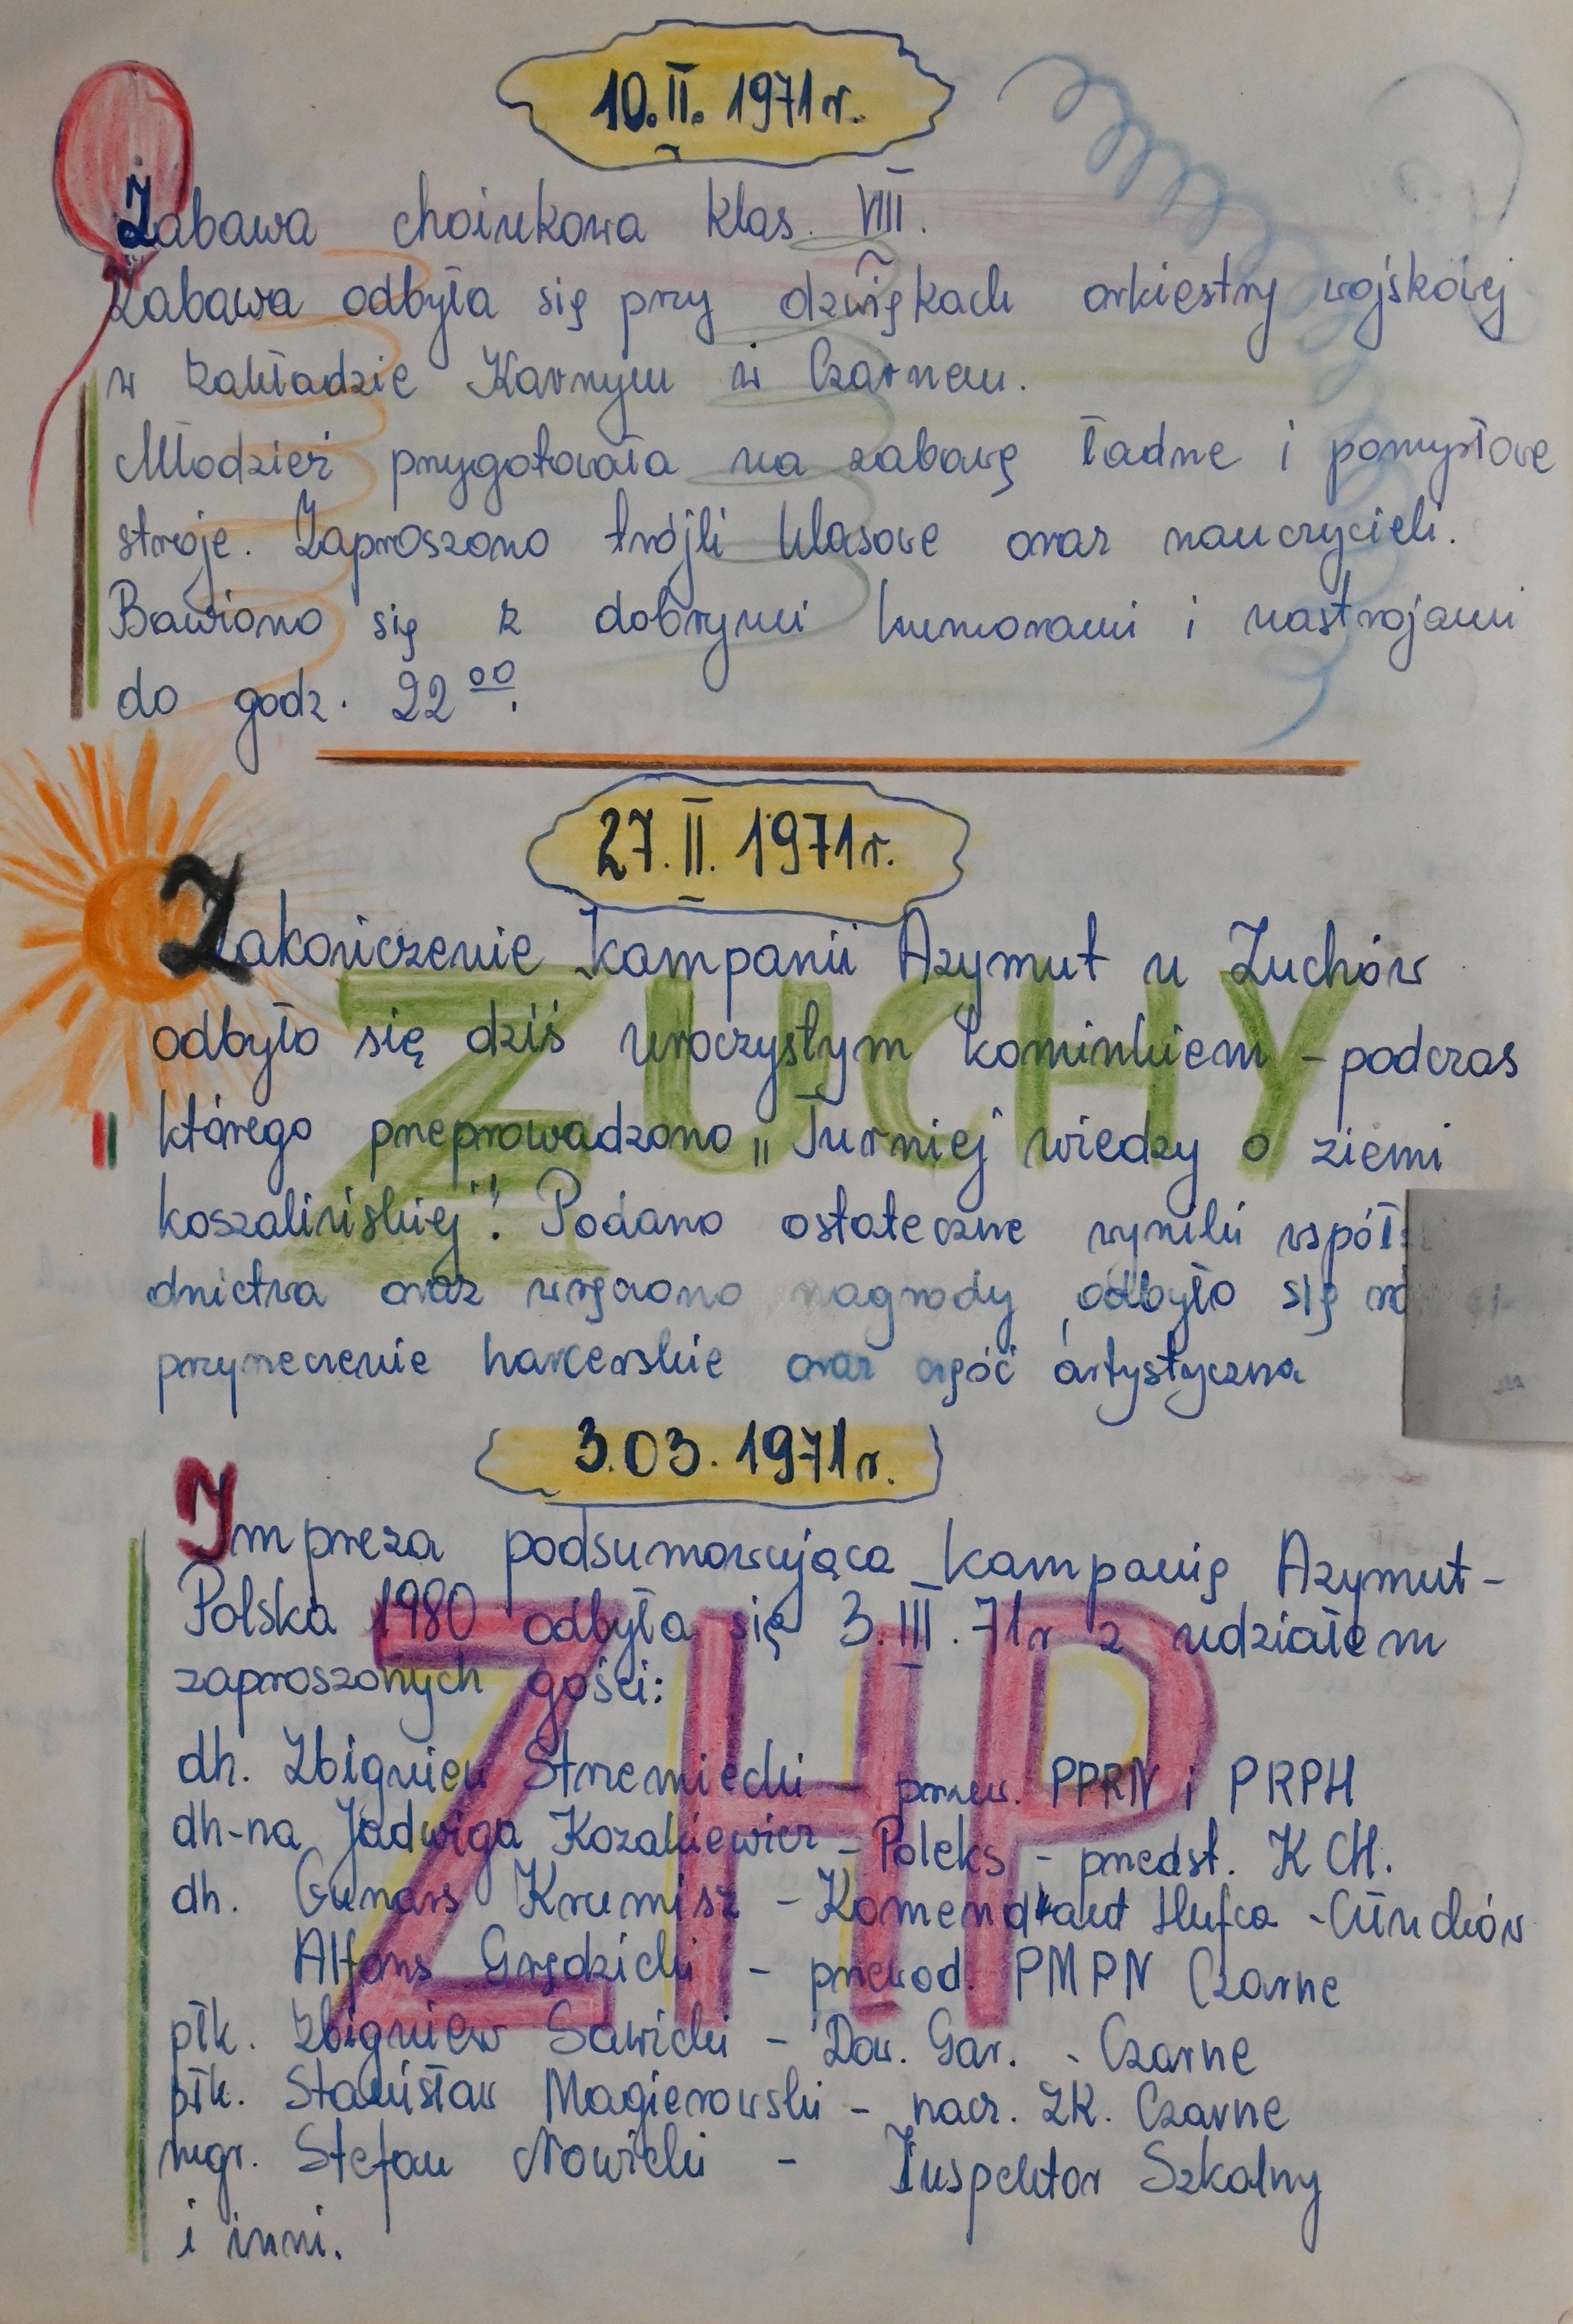 10.II.1971r.
Zabawa choinkowa klas VIII.
Zabawa odbyła się przy dzwiękach orkiestry wojskowej
w Zakładzie Karnym w Czarnem.
Młodzież przygotowała na zabawę ładne i pomysłowe
stroje. Zaproszono trójki klasowe oraz nauczycieli.
Bawiono się z dobrymi humorami i nastrojami
do godz. 22 00.
27.II.1971r.
Zakończenie kampanii Azymut u Zuchów
odbyło się dziś uroczystym kominkiem - podczas
którego przeprowadzono „Turniej wiedzy o ziemi
koszalińskiej". Podano ostateczne wyniki współ
dnictwa oraz wręczono nagrody, odbyło się
przyrzeczenie harcerskie oraz część artystyczna
ZUCHY
3.03.1971r.
Impreza podsumowująca kampanię Azymut-
Polska 1980 odbyła się 3.III.71r z udziałem
zaproszonych gości:
dh. Zbigniew Strzemiecki - przew. PPRN i PRPH
dh-na Jadwiga Kozakiewicz - Poleks - przedst. K CH.
dh. Gunars Krumisz - Komendant Hufca - Człuchów
Alfons Grędzicki - przewod. PMRN Czarne
płk. Zbigniew Sawicki - Dow. Gar. - Czarne
płk. Stanisław Magierowski - nacz. ZK. Czarne
mgr. Stefan Nowicki - Inspektor Szkolny
i inni.
ZHP